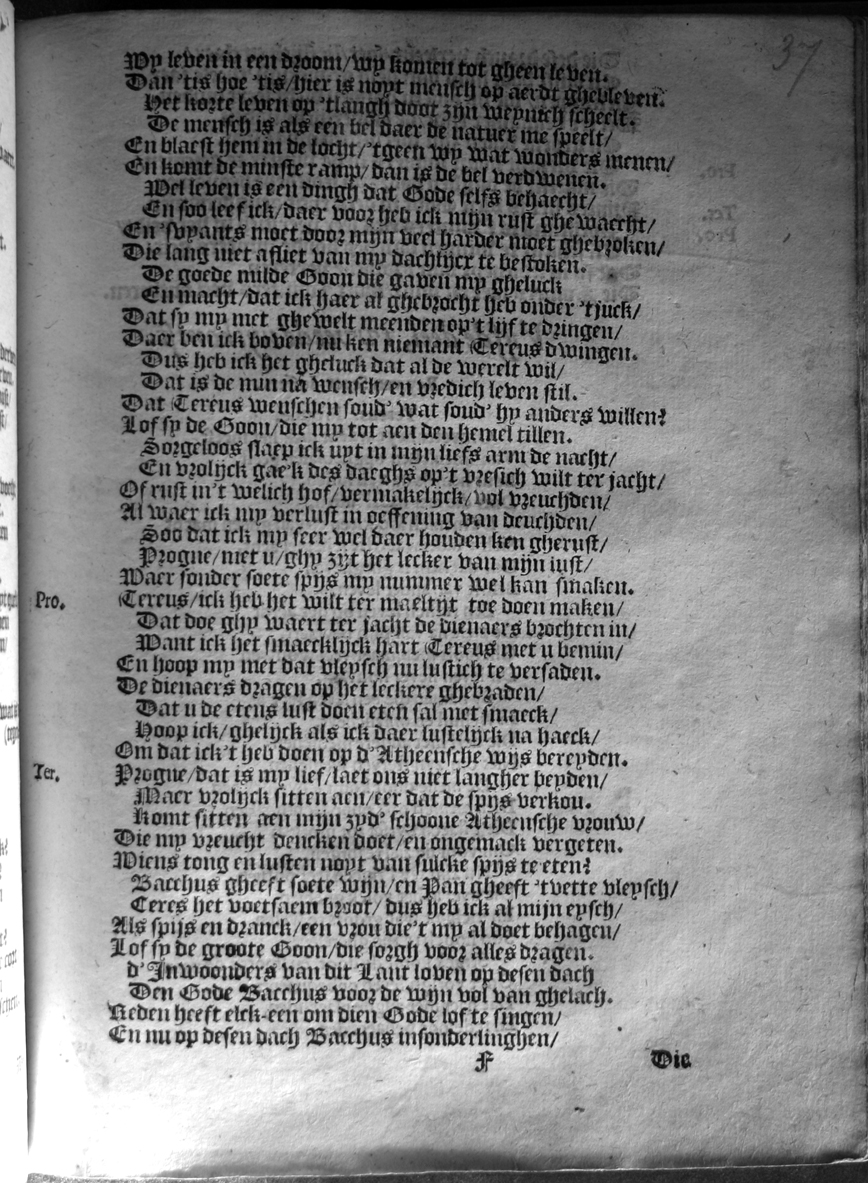 37
Wy leven in een droom/wy komen tot gheen leven.
Dan 'tis hoe 'tis/hier is noyt mensch op aerdt ghebleven.
Het korte leven op 'tlangh doot zijn weynich scheelt.
De mensch is als een bel daer de natuer me speelt/
En blaest hem in de locht/'tgeen wy wat wonders menen/
En komt de minste ramp/dan is de bel verdwenen.
Wel leven is een dingh dat Gode selfs behaecht/
En soo leef ick/daer voor heb ick mijn rust ghewaecht/
En 'svyants moet door mijn veel harder moet ghebroken/
Die lang niet afliet van my dachlijcx te bestoken.
De goede milde Goon die gaven my gheluck
En macht/dat ick haer al ghebrocht heb onder 'tjuck/
Dat sy my met ghewelt meenden op't lijf te dringen/
Daer ben ick boven/nu ken niemant Tereus dwingen.
Dus heb ick het gheluck dat al de werelt wil/
Dat is de min na wensch/en vredich leven stil.
Dat Tereus wenschen soud' wat soud' hy anders willen?
Lof sy de Goon/die my tot aen den hemel tillen.
Sorgeloos slaep ick uyt in mijn liefs arm de nacht/
En vrolijck gae'k des daeghs op't vresich wilt ter jacht/
Of rust in't welich hof/vermakelijck/vol vreuchden/
Al waer ick my verlust in oeffening van deuchden/
Soo dat ick my seer wel daer houden ken gherust/
Progne/met u/ghy zijt het lecker van mijn lust/
Waer sonder soete spijs my nummer wel kan smaken.
Pro. Tereus/ick heb het wilt ter maeltijt toe doen maken/
Dat doe ghy waert ter jacht de dienaers brochten in/
Want ick het smaecklijck hart Tereus met u bemin/
En hoop my met dat vleysch nu lustich te versaden.
De dienaers dragen op het leckere ghebraden/
Dat u de etens lust doen eten sal met smaeck/
Hoop ick/ghelijck als ick daer lustelijck na haeck/
Om dat ick't heb doen op d'Atheensche wijs bereyden.
Ter. Progne/dat is my lief/laet ons niet langher beyden/
Maer vrolijck sitten aen/eer dat de spijs verkou.
Komt sitten aen mijn zyd' schoone Atheensche vrouw/
Die my vreucht dencken doet/en ongemack vergeten.
Wiens tong en lusten noyt van sulcke spijs te eten?
Bacchus gheeft soete wijn/en Pan gheeft 'tvette vleysch/
Ceres het voetsaem broot/dus heb ick al mijn eysch/
Als spijs en dranck/een vrou die't my al doet behagen/
Lof sy de groote Goon/die sorgh voor alles dragen.
d'Inwoonders van dit Lant loven op desen dach
Den Gode Bacchus voor de wijn vol van ghelach.
Reden heeft elck-een om dien Gode lof te singen/
En nu op desen dach Bacchus insonderlinghen/
F Die